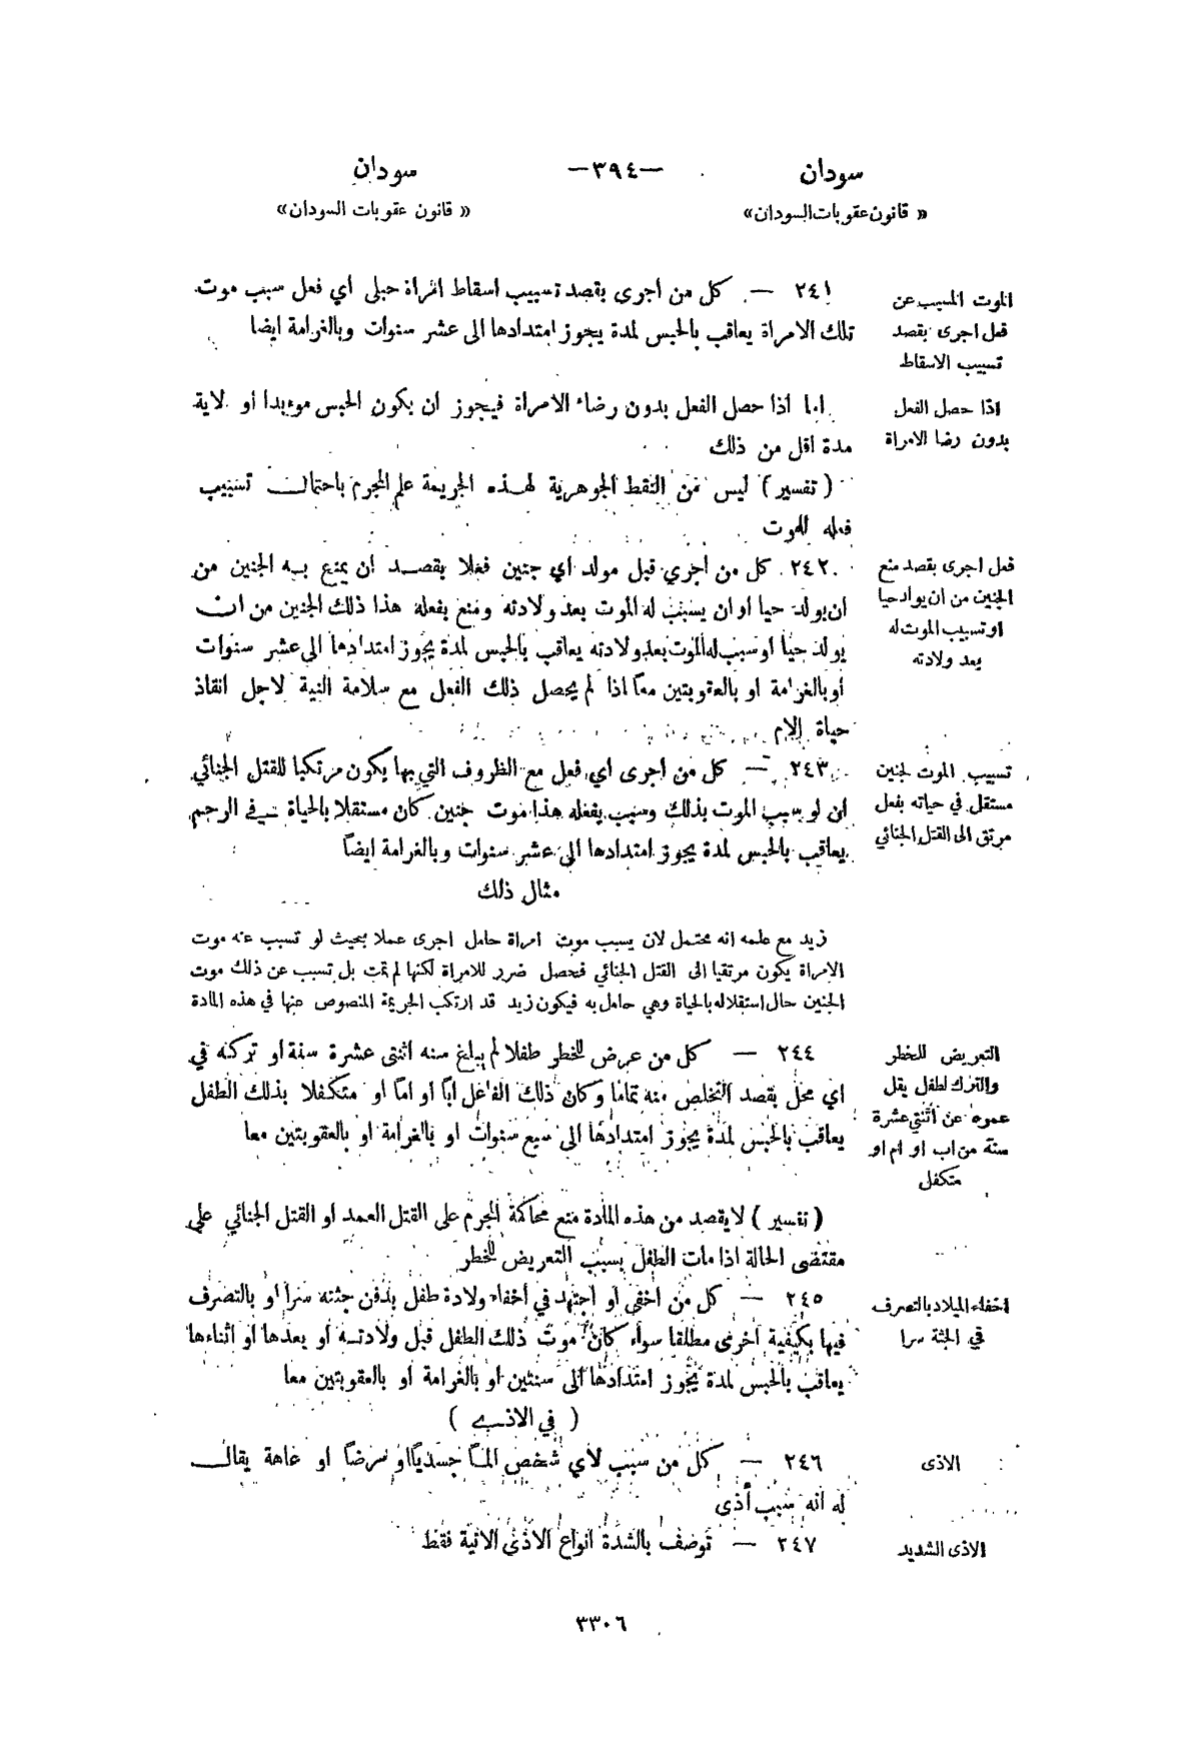 سودان —٣٩٤— سودان
« قانون عقوبات السودان» « قانون عقوبات السودان»
الموت المسبب عن
فعل اجرى بقصد
تسبيب الاسقاط
٢٤١ — كل من اجرى بقصد تسبيب اسقاط امراة حبلى اي فعل سبب موت
تلك الامراة يعاقب بالحبس لمدة يجوز امتدادها الى عشر سنوات وبالغرامة ايضا
اذا حصل الفعل
بدون رضا الامراة
اما اذا حصل الفعل بدون رضاء الامراة فيجوز ان يكون الحبس موءبدا أو لاية
مدة اقل من ذلك
( تفسير ) ليس من النقط الجوهرية لهذه الجريمة علم المجرم باحتمال تسبيب
فعله للموت
فعل اجرى بقصد منع
الجنين من ان يولد حيا
او تسبيب الموت له
بعد ولادته
٢٤٢ كل من اجري قبل مولد اي جنين فعلا بقصد ان يمنع به الجنين من
ان يولد حيا او ان يسبب له الموت بعد ولادته ومنع بفعله هذا ذلك الجنين من ان
يولد حيا او سبب له الموت بعد ولادته يعاقب بالحبس لمدة يجوز امتدادها الى عشر سنوات
أو بالغرامة او بالعقوبتين معا اذا لم يحصل ذلك الفعل مع سلامة النية لاجل انقاذ
حياة الام
تسبيب الموت لجنين
مستقل في حياته بفعل
مرتق الى القتل الجنائي
٢٤٣ — كل من اجرى اي فعل مع الظروف التي بها يكون مرتكبا للقتل الجنائي
ان لو سبب الموت بذلك وسبب بفعله هذا موت جنين كان مستقلا بالحياة في الرحم
يعاقب بالحبس لمدة يجوز امتدادها الى عشر سنوات وبالغرامة ايضاً
مثال ذلك
زيد مع علمه انه محتمل لان يسبب موت امراة حامل اجرى عملا بحيث لو تسبب عنه موت
الامراة يكون مرتقيا الى القتل الجنائي فحصل ضرر للامراة لكنها لم تمت بل تسبب عن ذلك موت
الجنين حال استقلاله بالحياة وهي حامل به فيكون زيد قد ارتكب الجريمة المنصوص عنها في هذه المادة
التعريض للخطر
والترك لطفل يقل
عمره عن اثنتي عشرة
سنة من اب او ام او
متكفل
٢٤٤ — كل من عرض للخطر طفلا لم يبلغ سنه اثنتى عشرة سنة او تركه في
اي محل بقصد التخلص منه تماما وكان ذلك الفاعل ابا أو اما او متكفلا بذلك الطفل
يعاقب بالحبس لمدة يجوز امتدادها الى سبع سنوات او بالغرامة او بالعقوبتين معا
( تفسير ) لا يقصد من هذه المادة منع محاكمة المجرم على القتل العمد او القتل الجنائي على
مقتضى الحالة اذا مات الطفل بسبب التعريض للخطر
اخفاء الميلاد بالتصرف
في الجثة سرا
٢٤٥ — كل من أخفى او اجتهد في أخفاء ولادة طفل بدفن جثته سرا او بالتصرف
فيها بكيفية أخرى مطلقا سواء كان موت ذلك الطفل قبل ولادته أو بعدها او اثناءها
يعاقب بالحبس لمدة يجوز امتدادها الى سنتين او بالغرامة أو بالعقوبتين معا
( في الاذى )
الاذى
٢٤٦ — كل من سبب لأي شخص الماً جسدياً او مرضاً او عاهة يقال
له انه سبب أذى
الاذى الشديد
٢٤٧ — توصف بالشدة انواع الاذى الاتية فقط
٣٣٠٦